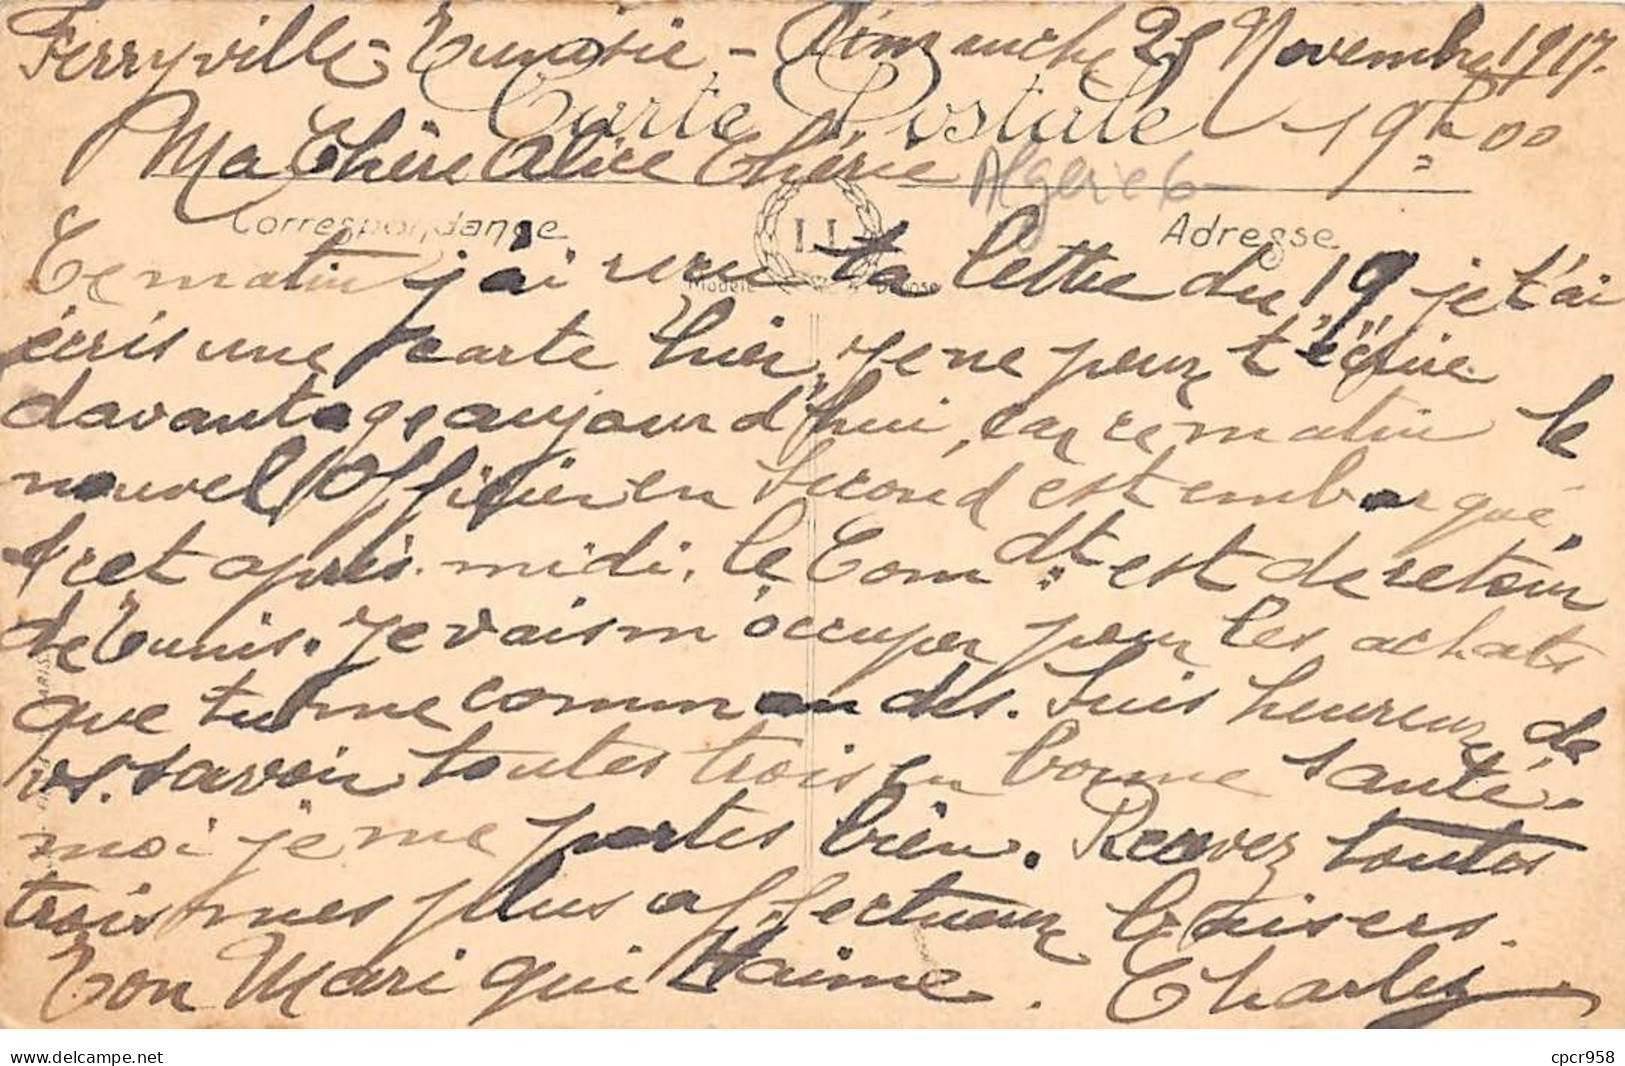 Ferryville - Tunisie - Dimanche 25 Novembre 1917.
Carte Postale
19h00
Ma Chère Alice Chérie
Algerie 6
Correspondance
LL
Adresse
Modèle Déposé
Ce matin j'ai reçu ta lettre du 19, je t'ai
écris une carte hier, je ne peux t'écrire
davantage aujourd'hui, car ce matin le
nouvel Officier en Second est embarqué,
& cet après-midi, le Comdt est de retour
de Tunis. Je vais m'occuper pour les achats
que tu me commandes. Suis heureux de
vs. savoir toutes trois en bonne santé.
moi je me portes bien. Recevez toutes
trois mes plus affectueux baisers.
Ton Mari qui t'aime. Charles
PARIS
cpcr958